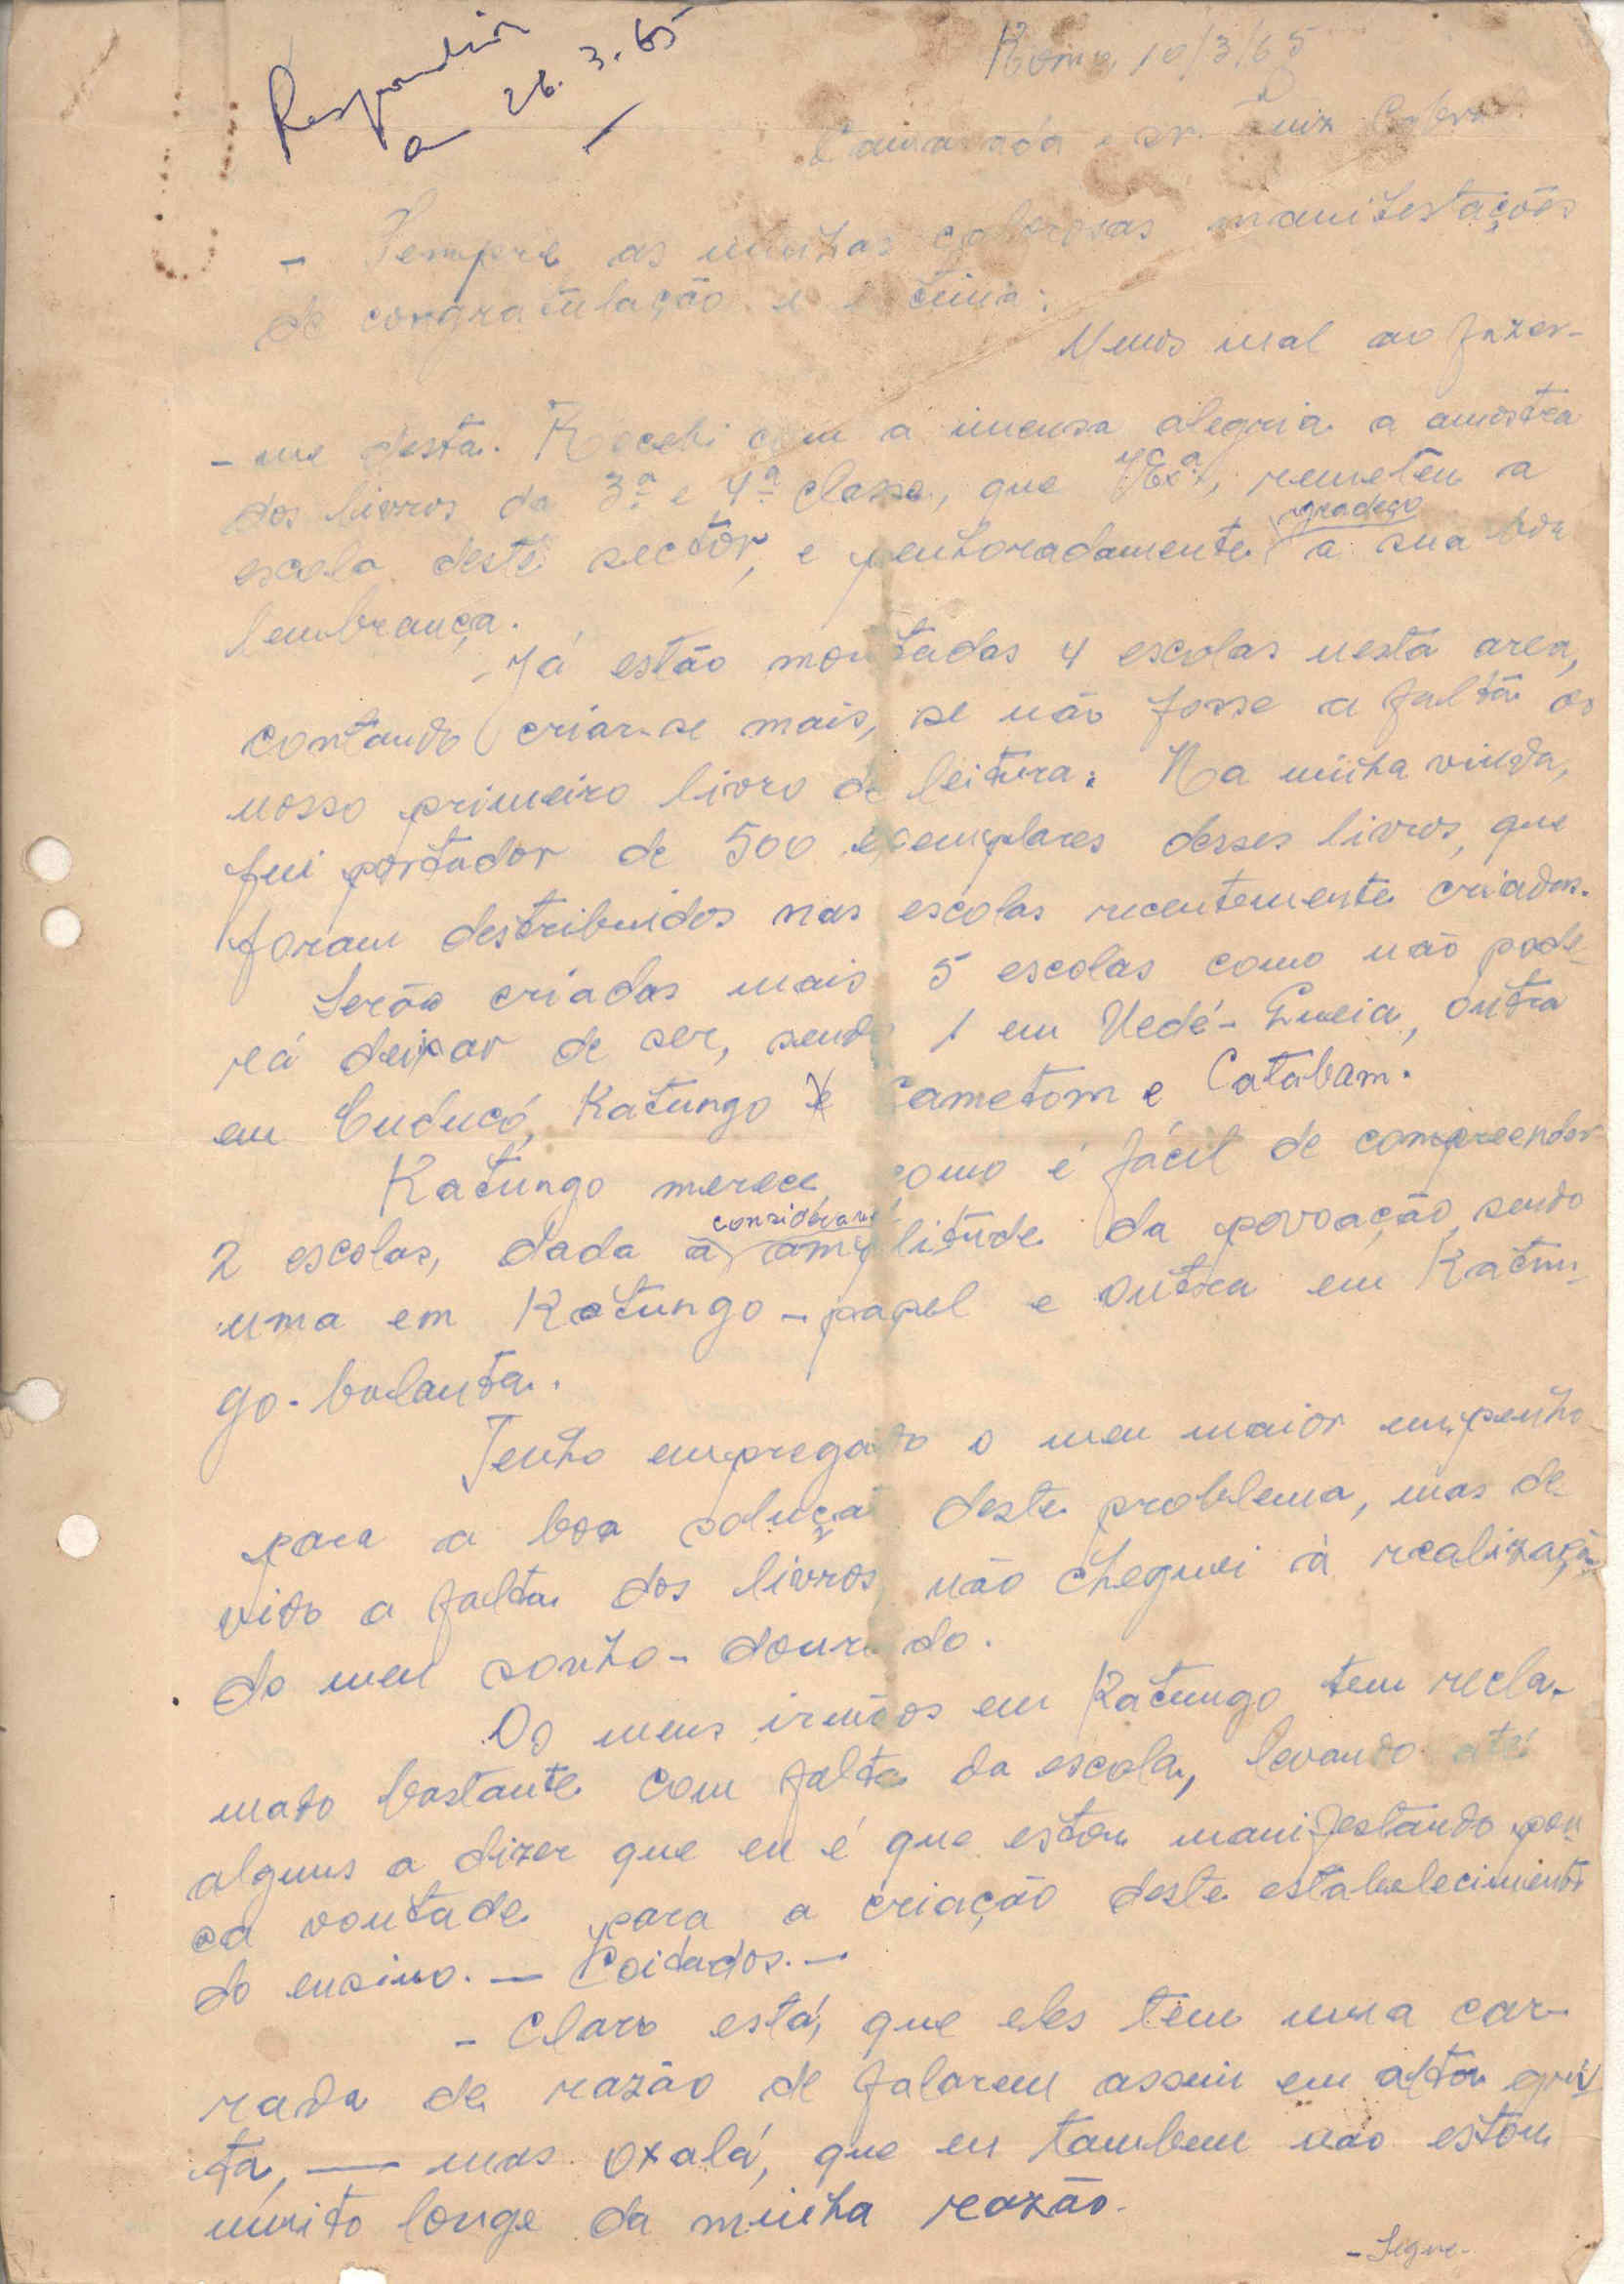 Respondido
a 26.3.65
10/3/65
Camarada e sr. Luiz Cabral
- Sempre as minhas calorosas manifestações
de congratulação e estima.
Menos mal ao fazer-
-me desta. Recebi com a imensa alegria a amostra
dos livros da 3ª e 4ª classe, que V.Exª, remeteu a
escola deste sector, e penhoradamente agradeço a sua boa
lembrança.
- Já estão montadas 4 escolas nesta area,
contando criar-se mais, se não fosse a falta do
nosso primeiro livro de leitura. Na minha vinda,
fui portador de 500 exemplares desses livros, que
foram destribuidos nas escolas recentemente criadas.
Serão criadas mais 5 escolas como não pode-
rá deixar de ser, sendo 1 em outra
em Cuducó, Katungo e Cametom e Catabam.
Katungo merece como é fácil de compreender
2 escolas, dada a consideravel amplitude da povoação, sendo
uma em Katungo-papel e outra em Katun-
go-balanta.
Tenho empregado o meu maior empenho
para a boa solução deste problema, mas de-
vido a falta dos livros, não cheguei à realização
do meu sonho-dourado.
Os meus irmãos em Katungo tem recla-
mado bastante com falta da escola, levando até
alguns a dizer que eu é que estou manifestando pou-
ca vontade para a criação deste estabelecimento
do ensino. — Coidados. —
- Claro está, que eles têm uma car-
rada de razão de falarem assim em alta gri-
ta, — mas oxalá, que eu tambem não estou
muito longe da minha razão.
- Segue -